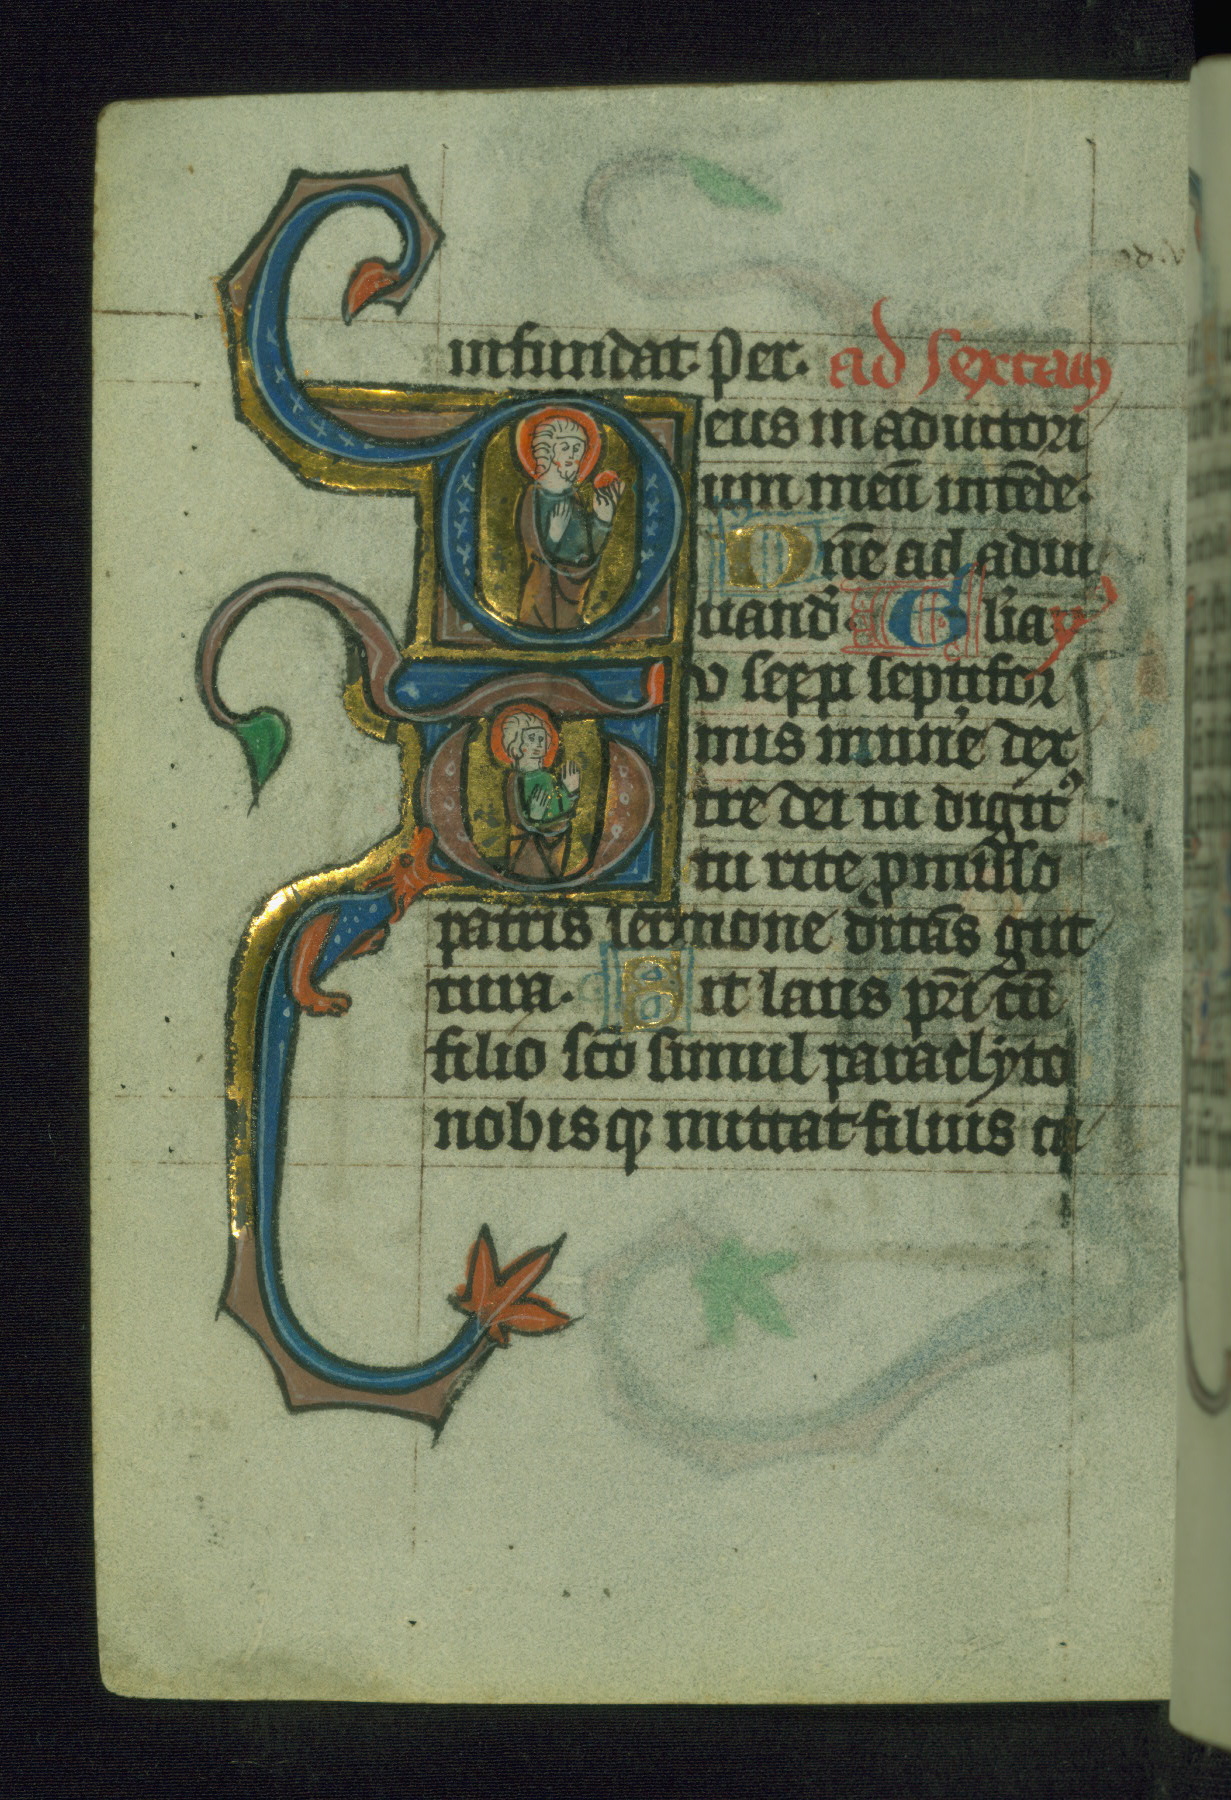 infundat. per. ad sextam
eus in adiutori
um meū intēde.
Dn̄e ad adiu
uand̄. Gl'ia
v sep̱ti septifor
mus mun̄e dex
tre dei tu digit᾿
tu rite ꝓmisso
patris sermone ditās gut
tura. Sit laus pr̄i cū
filio sc̄o simul paraclyto
nobisqꝫ mittat filius ca